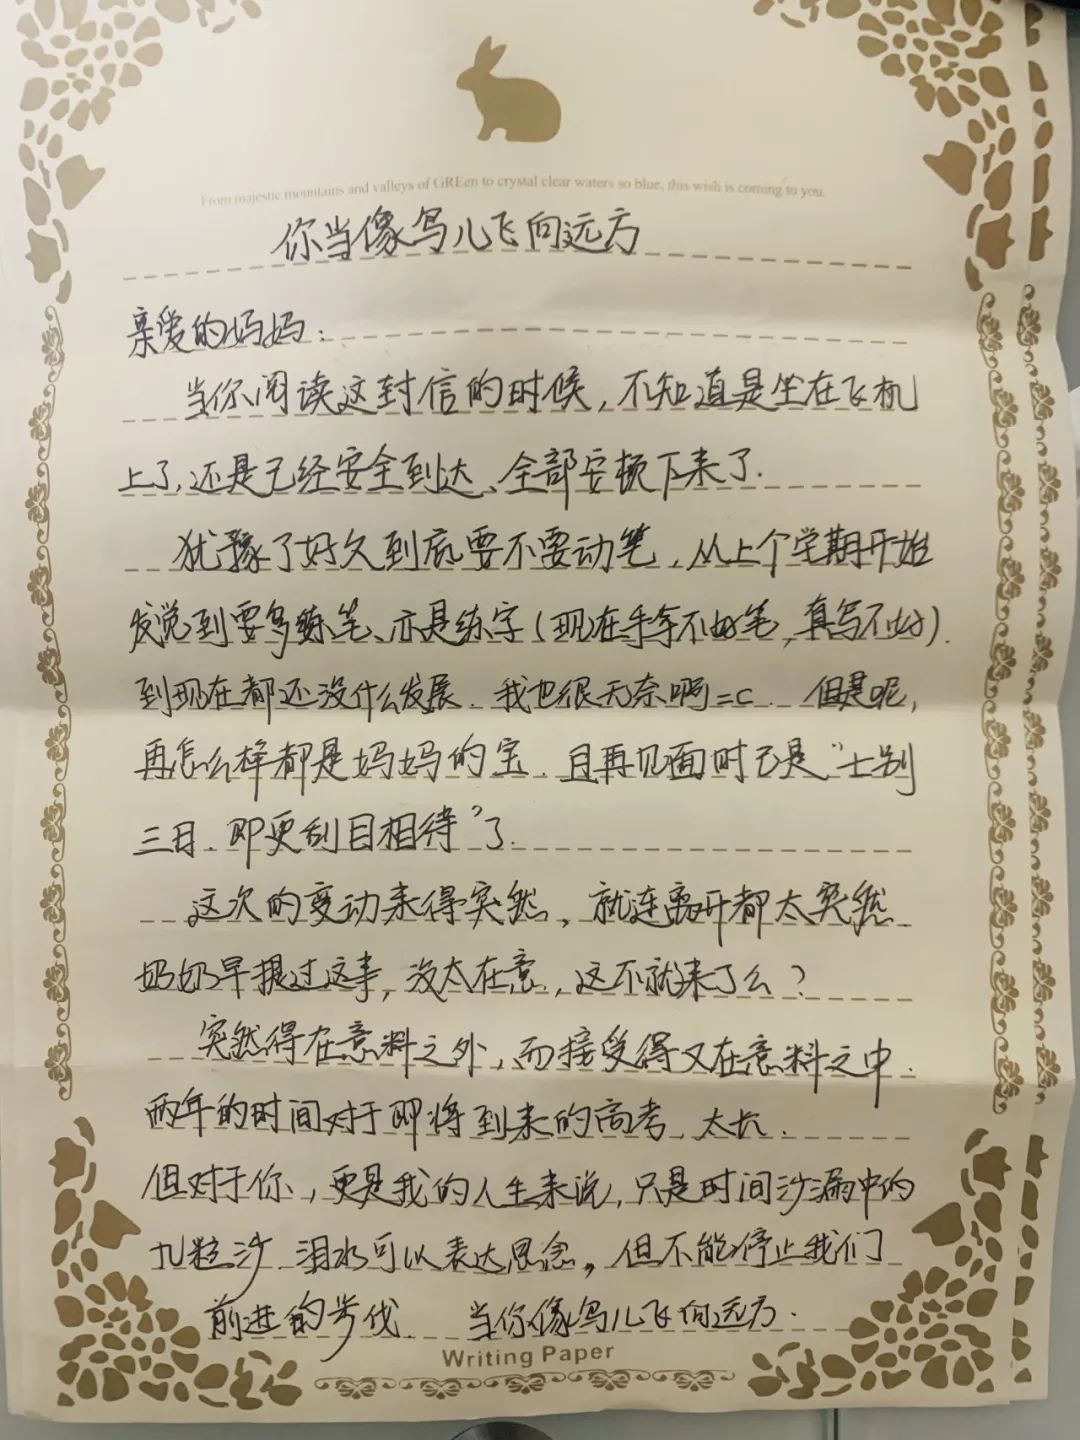 From majestic mountains and valleys of GREen to crystal clear waters so blue, this wish is coming to you.
你当像鸟儿飞向远方
亲爱的妈妈：
当你阅读这封信的时候，不知道是坐在飞机
上了，还是已经安全到达、全部安顿下来了.
犹豫了好久到底要不要动笔，从上个学期开始
发觉到要多练笔、亦是练字（现在手拿不好笔，真写不好）.
到现在都还没什么发展.我也很无奈啊=c. 但是呢，
再怎么样都是妈妈的宝.且再见面时已是“士别
三日.即更刮目相待”了.
这次的变动来得突然，就连离开都太突然
奶奶早提过这事，没太在意，这不就来了么？
突然得在意料之外，而接受得又在意料之中.
两年的时间对于即将到来的高考、太长.
但对于你，更是我的人生来说，只是时间沙漏中的
几粒沙 泪水可以表达思念，但不能停止我们
前进的步伐 当你像鸟儿飞向远方.
Writing Paper